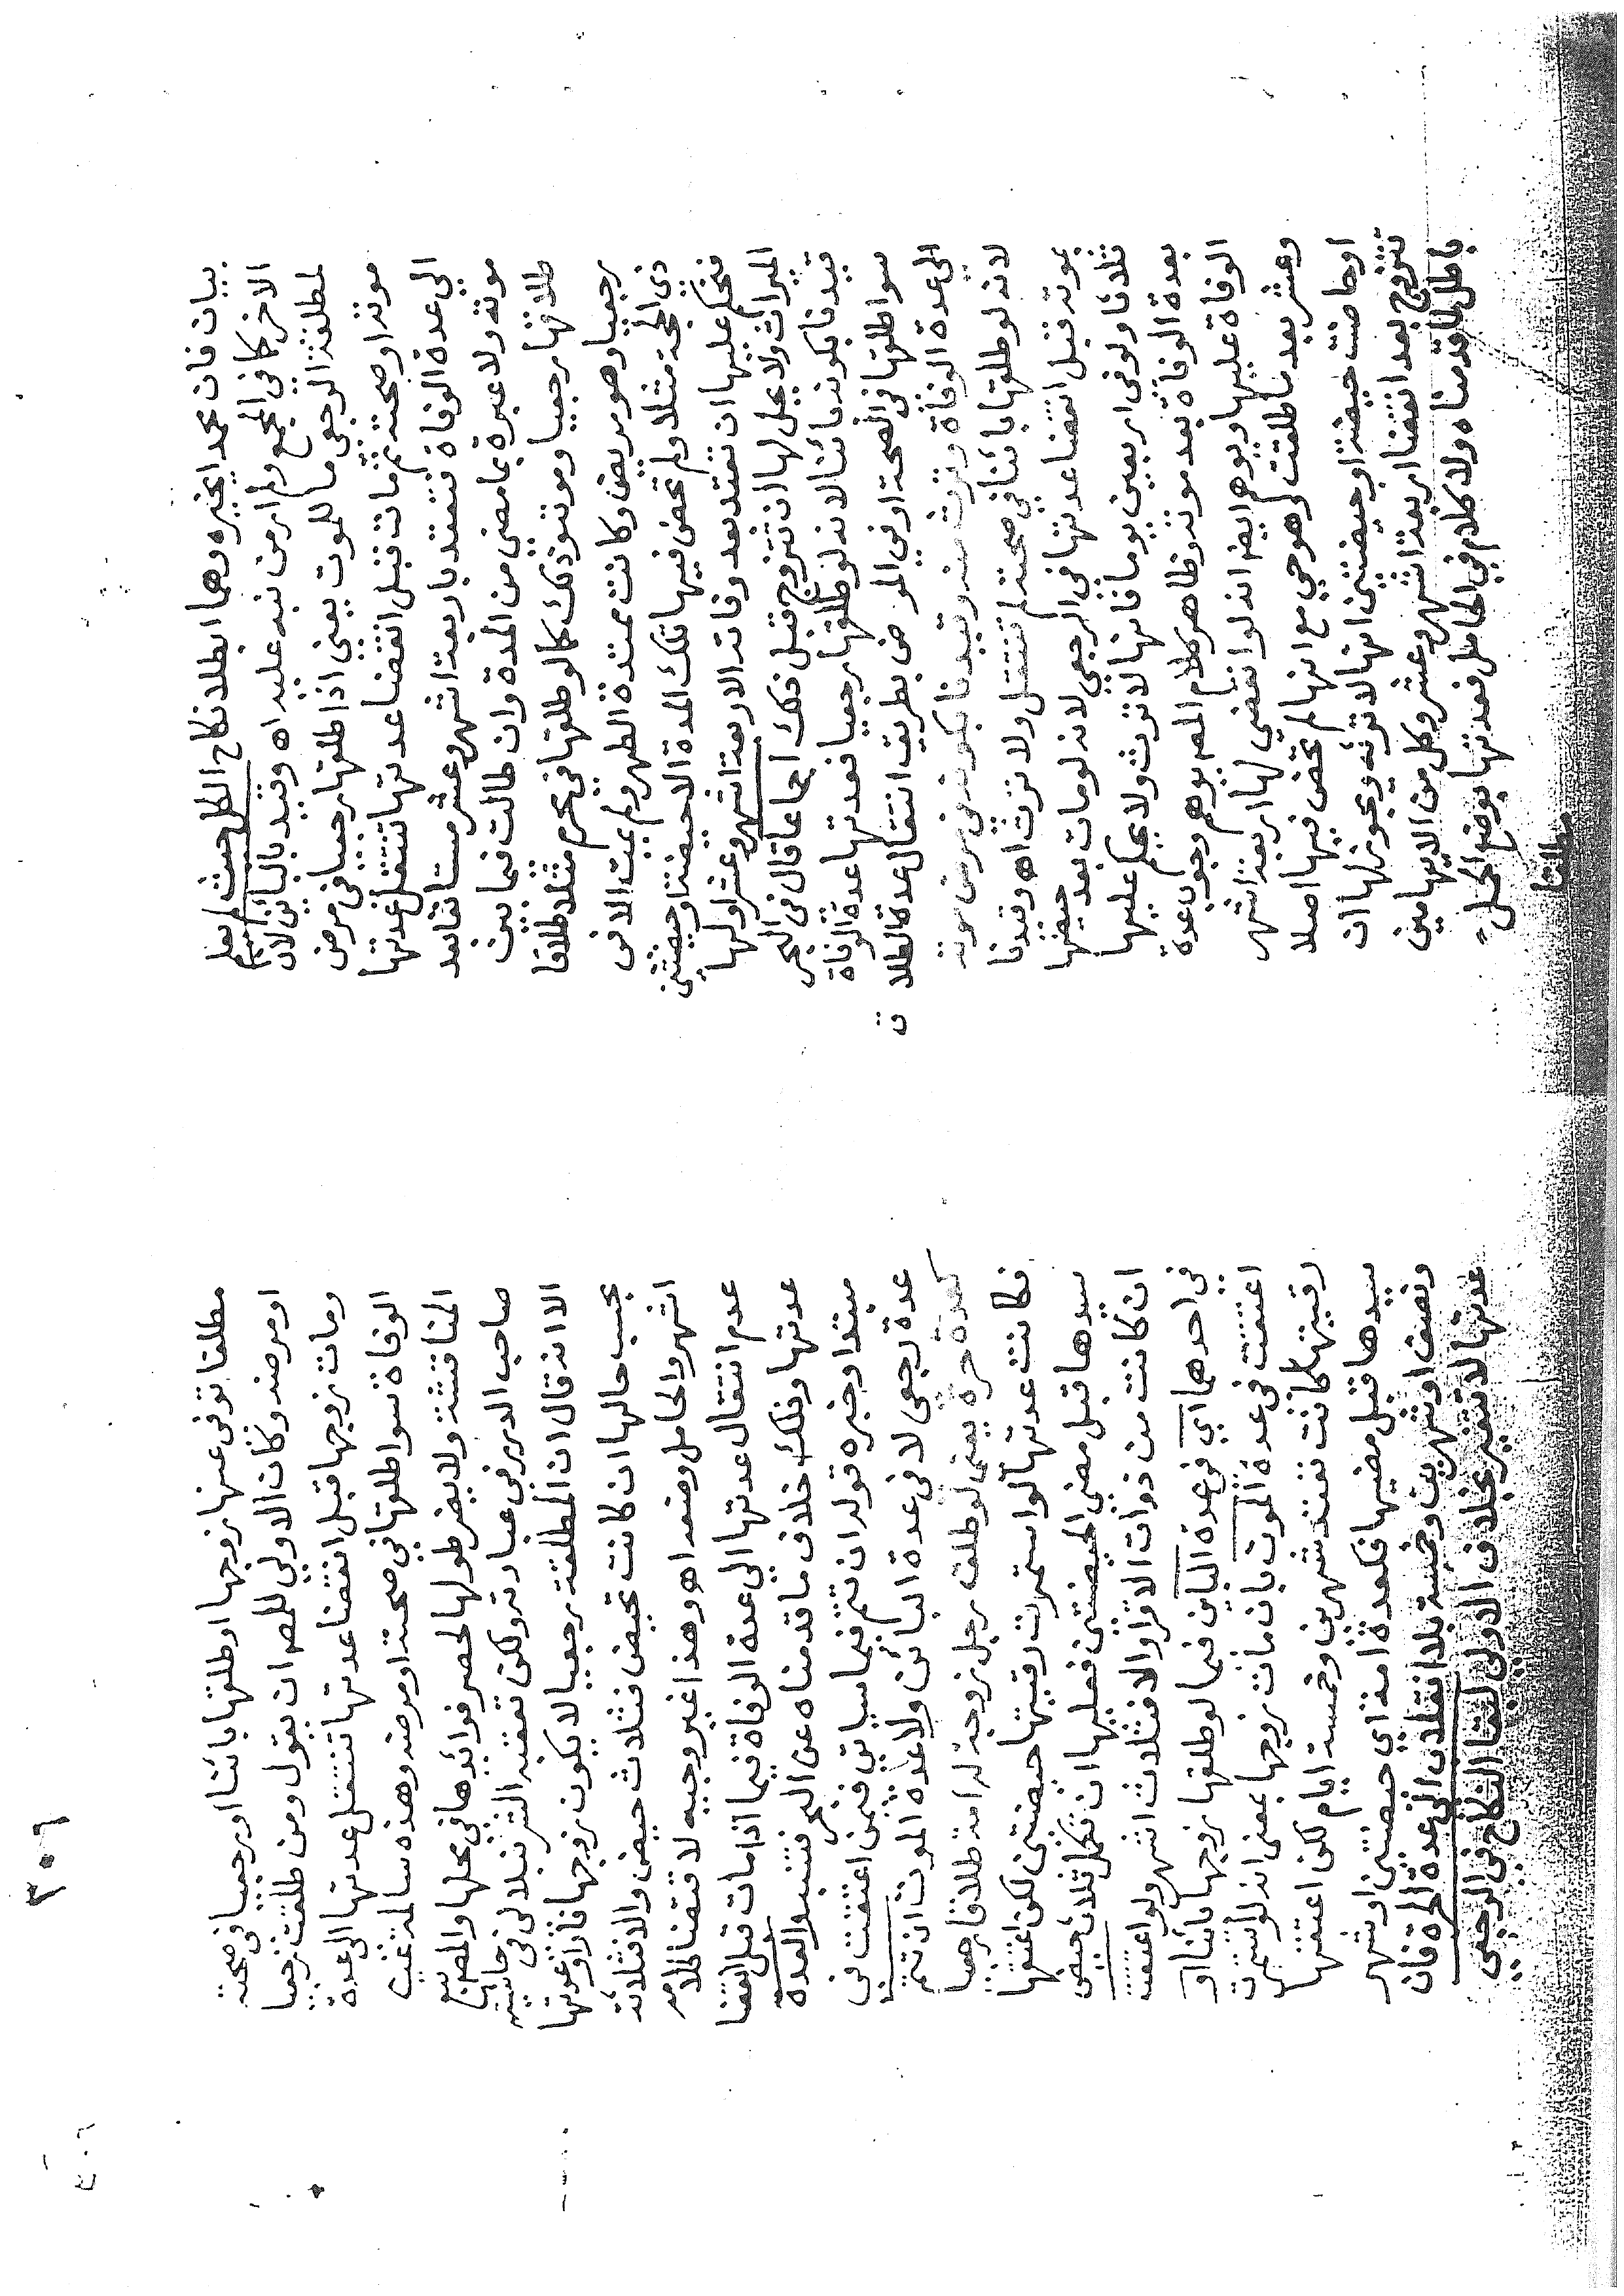 بيان فان محمدا يخيره وهما ابطلا نكاح الكل حيث لم يعلم
الاخر كما في المجمع ولم ار من نبه عليه اه وقيد بالباين لان
لمطلقة الرجعي ما للموت يعني اذا طلقها رجعيا في مرض
موته او صحته ثم مات قبل انقضا عدتها تنتقل عدتها
الى عدة الوفاة فتعتد باربعة اشهر وعشر مستانفا بعد
موته ولا عبرة بما مضى من المدة وان طالت فيما بين
طلاقها رجعيا وموته وذلك كما لو طلقها في محرم مثلا طلاقا
رجعيا وهو مريض وكانت ممتدة الطهر ولم يمت الا في
ذي الحجة مثلا ولم تحض فيها تلك المدة الا حيضة او حيضتين
فنحكم عليها ان تعتد بعد وفاته الاربعة اشهر وعشرا ولها
الميراث ولا يحل لها ان تتزوج قبل ذلك اجماعا قال في البحر
قيدنا بكونه بائنا لانه لو طلقها رجعيا فعدتها عدة الوفاة
سوا طلقها في الصحة او في المرض بطريق انتقال عدة الطلاق
الى عدة الوفاة وترث منه وقيدنا بكونه في مرض موته
لانه لو طلقها بائنا في صحته لم تنتقل ولا ترث اه وقيدنا
بموته قبل انقضا عدتها في الرجعي لانه لو مات بعد حيضها
ثلاثا ولو في اربعين يوما فانها لا ترث ولا يحكم عليها
بعدة الوفاة بعد موته وظاهر كلام المص يوهم وجوب عدة
الوفاة عليها ويوهم ايضا انه لو انقضى لها اربعة اشهر
وعشر بعد ما طلقت وهو حي مع انها لم تحض فيها اصلا
او حاضت حيضة او حيضتين انها لا ترثه ويجوز لها ان
تتزوج بعد انقضا اربعة اشهر وعشر وكل من الايهامين
باطل لما قدمناه ولا كلام في الحامل فعدتها بوضع الحمل
مطلقا
٣٠٦
مطلقا توفى عنها زوجها او طلقها بائنا او رجعيا في صحته
او مرضه وكان الاولى للمص ان يقول ومن طلقت رجعيا
ومات زوجها قبل انقضا عدتها تنتقل عدتها الى عدة
الوفاة سوا طلقها في صحته او مرضه وهذه سالمة عن
المناقشة ولا يضر طولها لحصر فوائدها في محلها والمص تبع
صاحب الدرر في عبارته ولكن تعقبه الشرنبلالي في حاشيته
الا انه قال ان المطلقة رجعيا لا يكون زوجها فارا وعدتها
بحسب حالها ان كانت تحيض فثلاث حيض والا فثلاثة
اشهر والحامل وضعه اه وهذا غير وجيه لاقتضا كلامه
عدم انتقال عدتها الى عدة الوفاة فيما اذا مات قبل انقضا
عدتها وذلك خلاف ما قدمناه عن البحر فتنبه والعدة
مبتدا وخبره قوله ان تتم فيما سياتي فيمن اعتقت في
عدة رجعي لا في عدة البائن ولا عدة الموت ان تتم
كعدة حرة يعني لو طلق رجل زوجة له امة طلاقا رجعيا
فكانت عدتها لو استمرت رقيتها حيضتين لكن اعتقها
سيدها قبل مضي الحيضتين فعليها ان تكمل ثلاث حيض
ان كانت من ذوات الاقرا والا فثلاث اشهر ولو اعتقت
في احدهما اي في عدة الباين فيما لو طلقها زوجها بائنا او
اعتقت في عدة الموت بان مات زوجها بمعنى انه لو استمرت
رقيتها كانت تعتد شهرين وخمسة ايام لكن اعتقها
سيدها قبل مضيها فكعدة امة اي حيضتين او شهر
ونصف او شهرين وخمسة بلا انتقال الى عدة الحرة فان
عدتها لا تتغير بخلاف الاولى لبقا النكاح في الرجعي